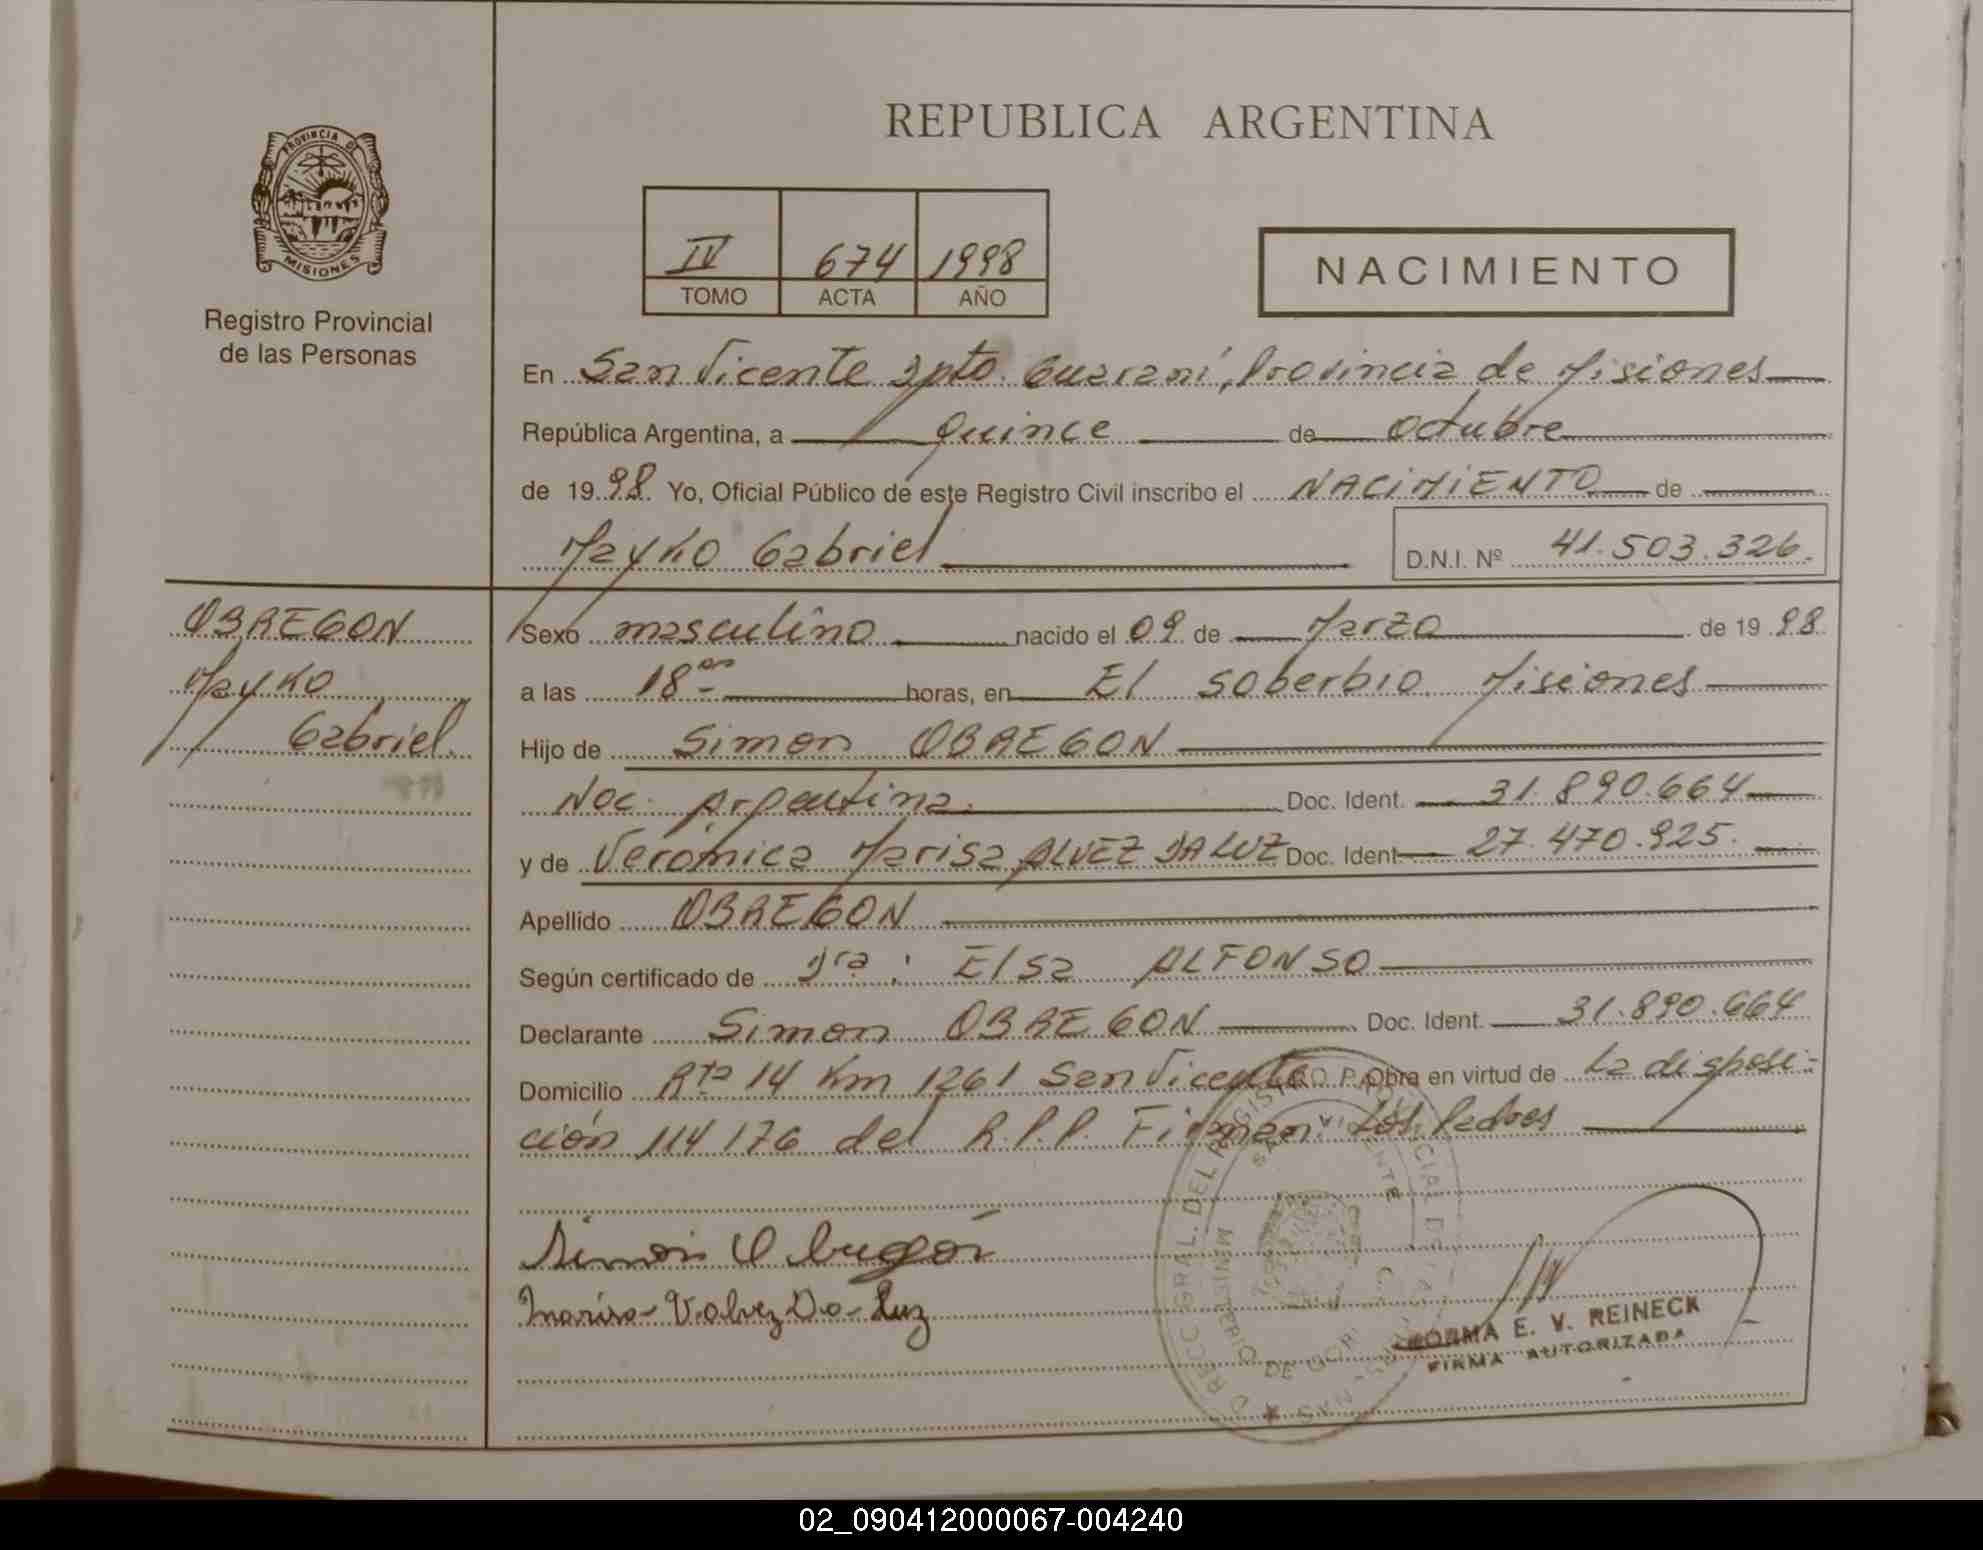 REPUBLICA ARGENTINA
PROVINCIA DE
MISIONES
Registro Provincial
de las Personas
IV 674 1998
TOMO ACTA AÑO
NACIMIENTO
En San Vicente Dpto. Guaraní, Provincia de Misiones
República Argentina, a Quince de Octubre
de 1998 Yo, Oficial Público de este Registro Civil inscribo el NACIMIENTO de
Mayko Gabriel D.N.I. Nº 41.503.326.
OBREGON
Mayko
Gabriel.
Sexo masculino nacido el 09 de Marzo de 1998
a las 18 hs horas, en El Soberbio Misiones
Hijo de Simon OBREGON
Nac. Argentina. Doc. Ident. 31.890.664
y de Verónica Marisa ALVEZ DA LUZ Doc. Ident 27.470.925.
Apellido OBREGON
Según certificado de Dra: Elsa ALFONSO
Declarante Simon OBREGON Doc. Ident. 31.890.664
Domicilio Rta 14 Km 1261 San Vicente Obra en virtud de La disposi-
ción 114176 del R.P.P. Firman: Los Padres
Simon Obregón
Marisa Valvez Da Luz
NORMA E. V. REINECK
FIRMA AUTORIZADA
02_090412000067-004240